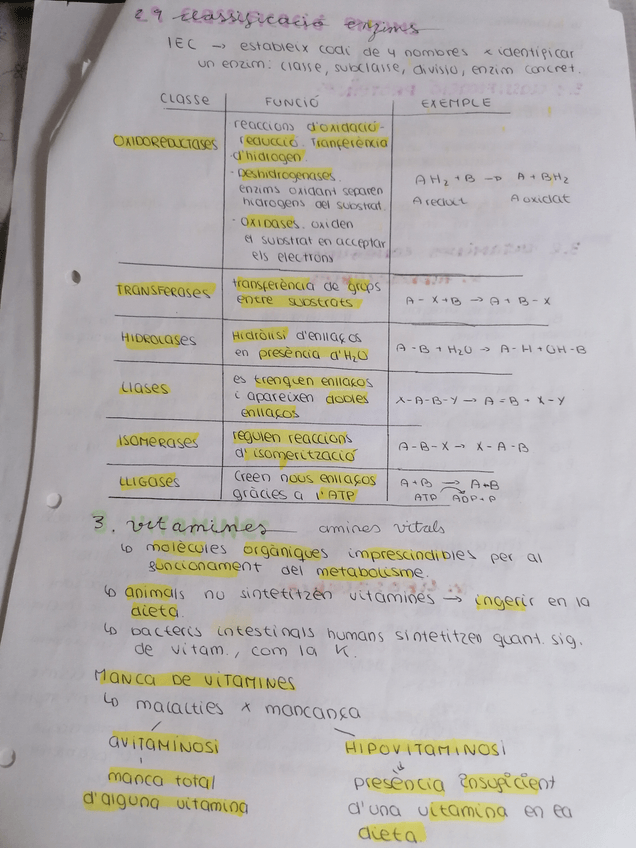 2.9 classificació enzims
IEC → estableix codi de 4 nombres x identificar
un enzim: classe, subclasse, divisió, enzim concret.
CLASSE FUNCIÓ EXEMPLE
OXIDOREDUCTASES
reaccions d'oxidació-
reducció. Tranferència
d'hidrogen.
· Deshidrogenases.
enzims oxidant separen
hidrogens del substrat.
· oxidases. oxiden
el substrat en acceptar
els electrons
AH₂ + B → A + BH₂
A reduït A oxidat
TRANSFERASES
transferència de grups
entre substrats
A - X + B → A + B - X
HIDROLASES
Hidròlisi d'enllaços
en presència d'H₂O
A - B + H₂O → A - H + OH - B
LIASES
es trenquen enllaços
i apareixen dobles
enllaços
X - A - B - Y → A = B + X - Y
ISOMERASES
regulen reaccions
d'isomerització
A - B - X → X - A - B
LLIGASES
Creen nous enllaços
gràcies a l'ATP
A + B → A - B
ATP ADP + P
3. vitamines amines vitals
↳ molècules orgàniques imprescindibles per al
funcionament del metabolisme.
↳ animals no sintetitzen vitamines → ingerir en la
dieta.
↳ bacteris intestinals humans sintetitzen quant. sig.
de vitam., com la K.
MANCA DE VITAMINES
↳ malalties x mancança
AVITAMINOSI HIPOVITAMINOSI
manca total presència insuficient
d'alguna vitamina d'una vitamina en la
dieta.